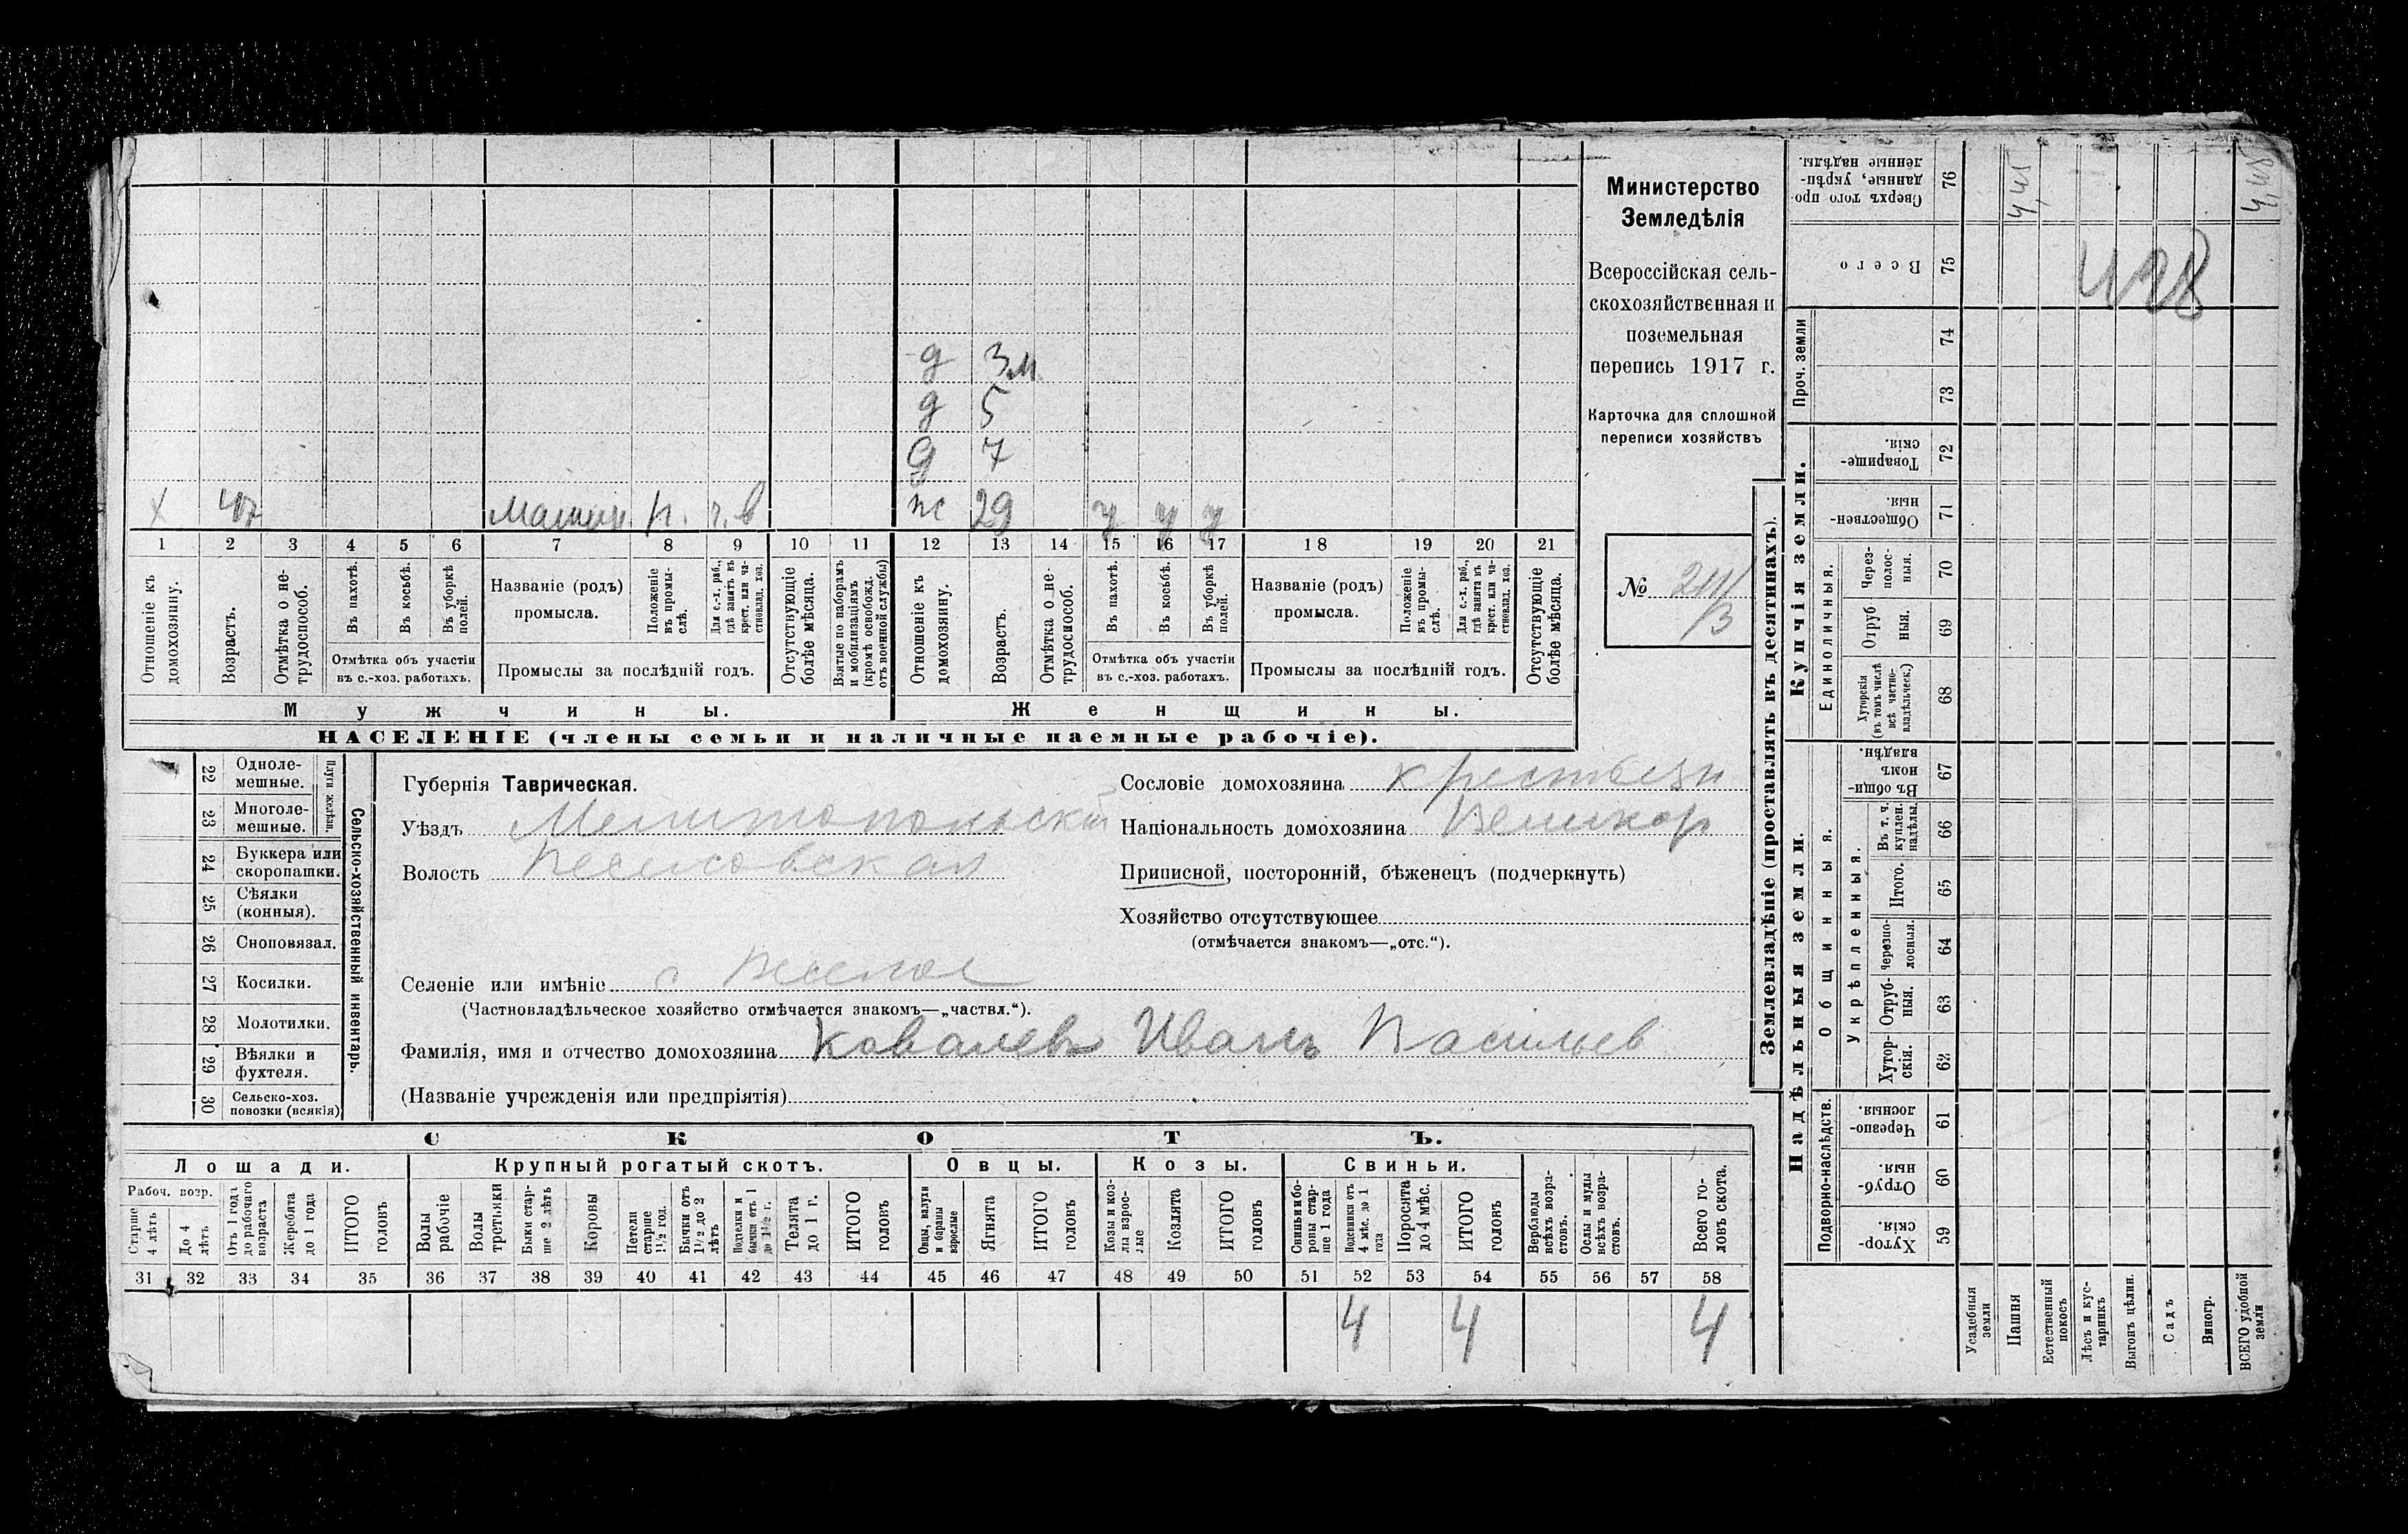 Министерство
Земледѣлія
Всероссійская сель-
скохозяйственная и
поземельная
перепись 1917 г.
Карточка для сплошной
переписи хозяйствъ
№
д 3 м.
д 5
д 7
х 47 п. ж 29 у у у
1 2 3 4 5 6 7 8 9 10 11 12 13 14 15 16 17 18 19 20 21
Отношеніе къ домохозяину.
Возрастъ.
Отмѣтка о не-трудоспособ.
Въ пахотѣ.
Въ косьбѣ.
Въ уборкѣ полей.
Отмѣтка объ участіи
въ с.-хоз. работахъ.
Названіе (родъ)
промысла.
Положеніе въ промы-слѣ.
Для с.-х. раб., гдѣ занятъ въ крест. или ча-стновлад. хоз.
Промыслы за послѣдній годъ.
Отсутствующіе болѣе мѣсяца.
Взятые по наборамъ и мобилизаціямъ (кромѣ освобожд. отъ военной службы)
Отношеніе къ домохозяину.
Возрастъ.
Отмѣтка о не-трудоспособ.
Въ пахотѣ.
Въ косьбѣ.
Въ уборкѣ полей.
Отмѣтка объ участіи
въ с.-хоз. работахъ.
Названіе (родъ)
промысла.
Положеніе въ промы-слѣ.
Для с.-х. раб., гдѣ занятъ въ крест. или ча-стновлад. хоз.
Промыслы за послѣдній годъ.
Отсутствующіе болѣе мѣсяца.
Мужчины. Женщины.
НАСЕЛЕНІЕ (члены семьи и наличные наемные рабочіе).
22 Одноле-мешные.
23 Многоле-мешные.
Плуги желѣзн.
24 Буккера или скоропашки.
25 Сѣялки (конныя).
26 Сноповязал.
27 Косилки.
28 Молотилки.
29 Вѣялки и фухтеля.
30 Сельско-хоз. повозки (всякія)
Сельско-хозяйственный инвентарь.
Губернія Таврическая.
Уѣздъ Мелитопольскій
Волость Веселовская
Сословіе домохозяина крестьян
Національность домохозяина Великор
Приписной, посторонній, бѣженецъ (подчеркнуть)
Хозяйство отсутствующее
(отмѣчается знакомъ—„отс.“).
Селеніе или имѣніе с Веселое
(Частновладѣльческое хозяйство отмѣчается знакомъ—„частвл.“).
Фамилія, имя и отчество домохозяина Ковалевъ Иванъ Васильев
(Названіе учрежденія или предпріятія)
СКОТЪ.
Лошади. Крупный рогатый скотъ. Овцы. Козы. Свиньи.
Рабоч. возр.
Старше 4 лѣтъ
До 4 лѣтъ
Отъ 1 года до рабочаго возраста
Жеребята до 1 года
ИТОГО головъ
Волы рабочіе
Волы третьяки
Быки стар-ше 2 лѣтъ
Коровы
Нетели старше 1½ год.
Бычки отъ 1½ до 2 лѣтъ
Подтелки и бычки отъ 1 до 1½ г.
Телята до 1 г.
ИТОГО головъ
Овцы, валухи и бараны взрослые
Ягнята
ИТОГО головъ
Козы и коз-лы взрос-лые
Козлята
ИТОГО головъ
Свиньи и бо-ровы стар-ше 1 года
Подсвинки отъ 4 мѣс. до 1 года
Поросята до 4 мѣс.
ИТОГО головъ
Верблюды всѣхъ возра-стовъ.
Ослы и мулы всѣхъ возра-стовъ.
Всего го-ловъ скота.
31 32 33 34 35 36 37 38 39 40 41 42 43 44 45 46 47 48 49 50 51 52 53 54 55 56 57 58
4 4 4
Землевладѣніе (проставлять въ десятинахъ).
Надѣльныя земли.
Купчія земли.
Проч. земли
Подворно-наслѣдств.
Общинныя.
Укрѣпленныя.
Единоличныя.
Сверхъ того про-данные, укрѣп-ленные надѣлы. 76
Всего 75
74
73
Товарище-скія. 72
Обществен-ныя. 71
Через-полос-ныя. 70
Отруб ныя. 69
Хуторскія (въ томъ числѣ всѣ частно-владѣльческ.) 68
Въ общи-номъ владѣн. 67
Въ т. ч. куплен. надѣлы. 66
Итого. 65
Черезпо-лосныя. 64
Отруб-ныя. 63
Хутор-скія. 62
Черезпо-лосныя 61
Отруб-ныя. 60
Хутор-скія. 59
Усадебныя земли
Пашня
Естественный покосъ
Лѣсъ и кус-тарникъ
Выгонъ цѣлин.
Садъ
Виногр.
ВСЕГО удобной земли